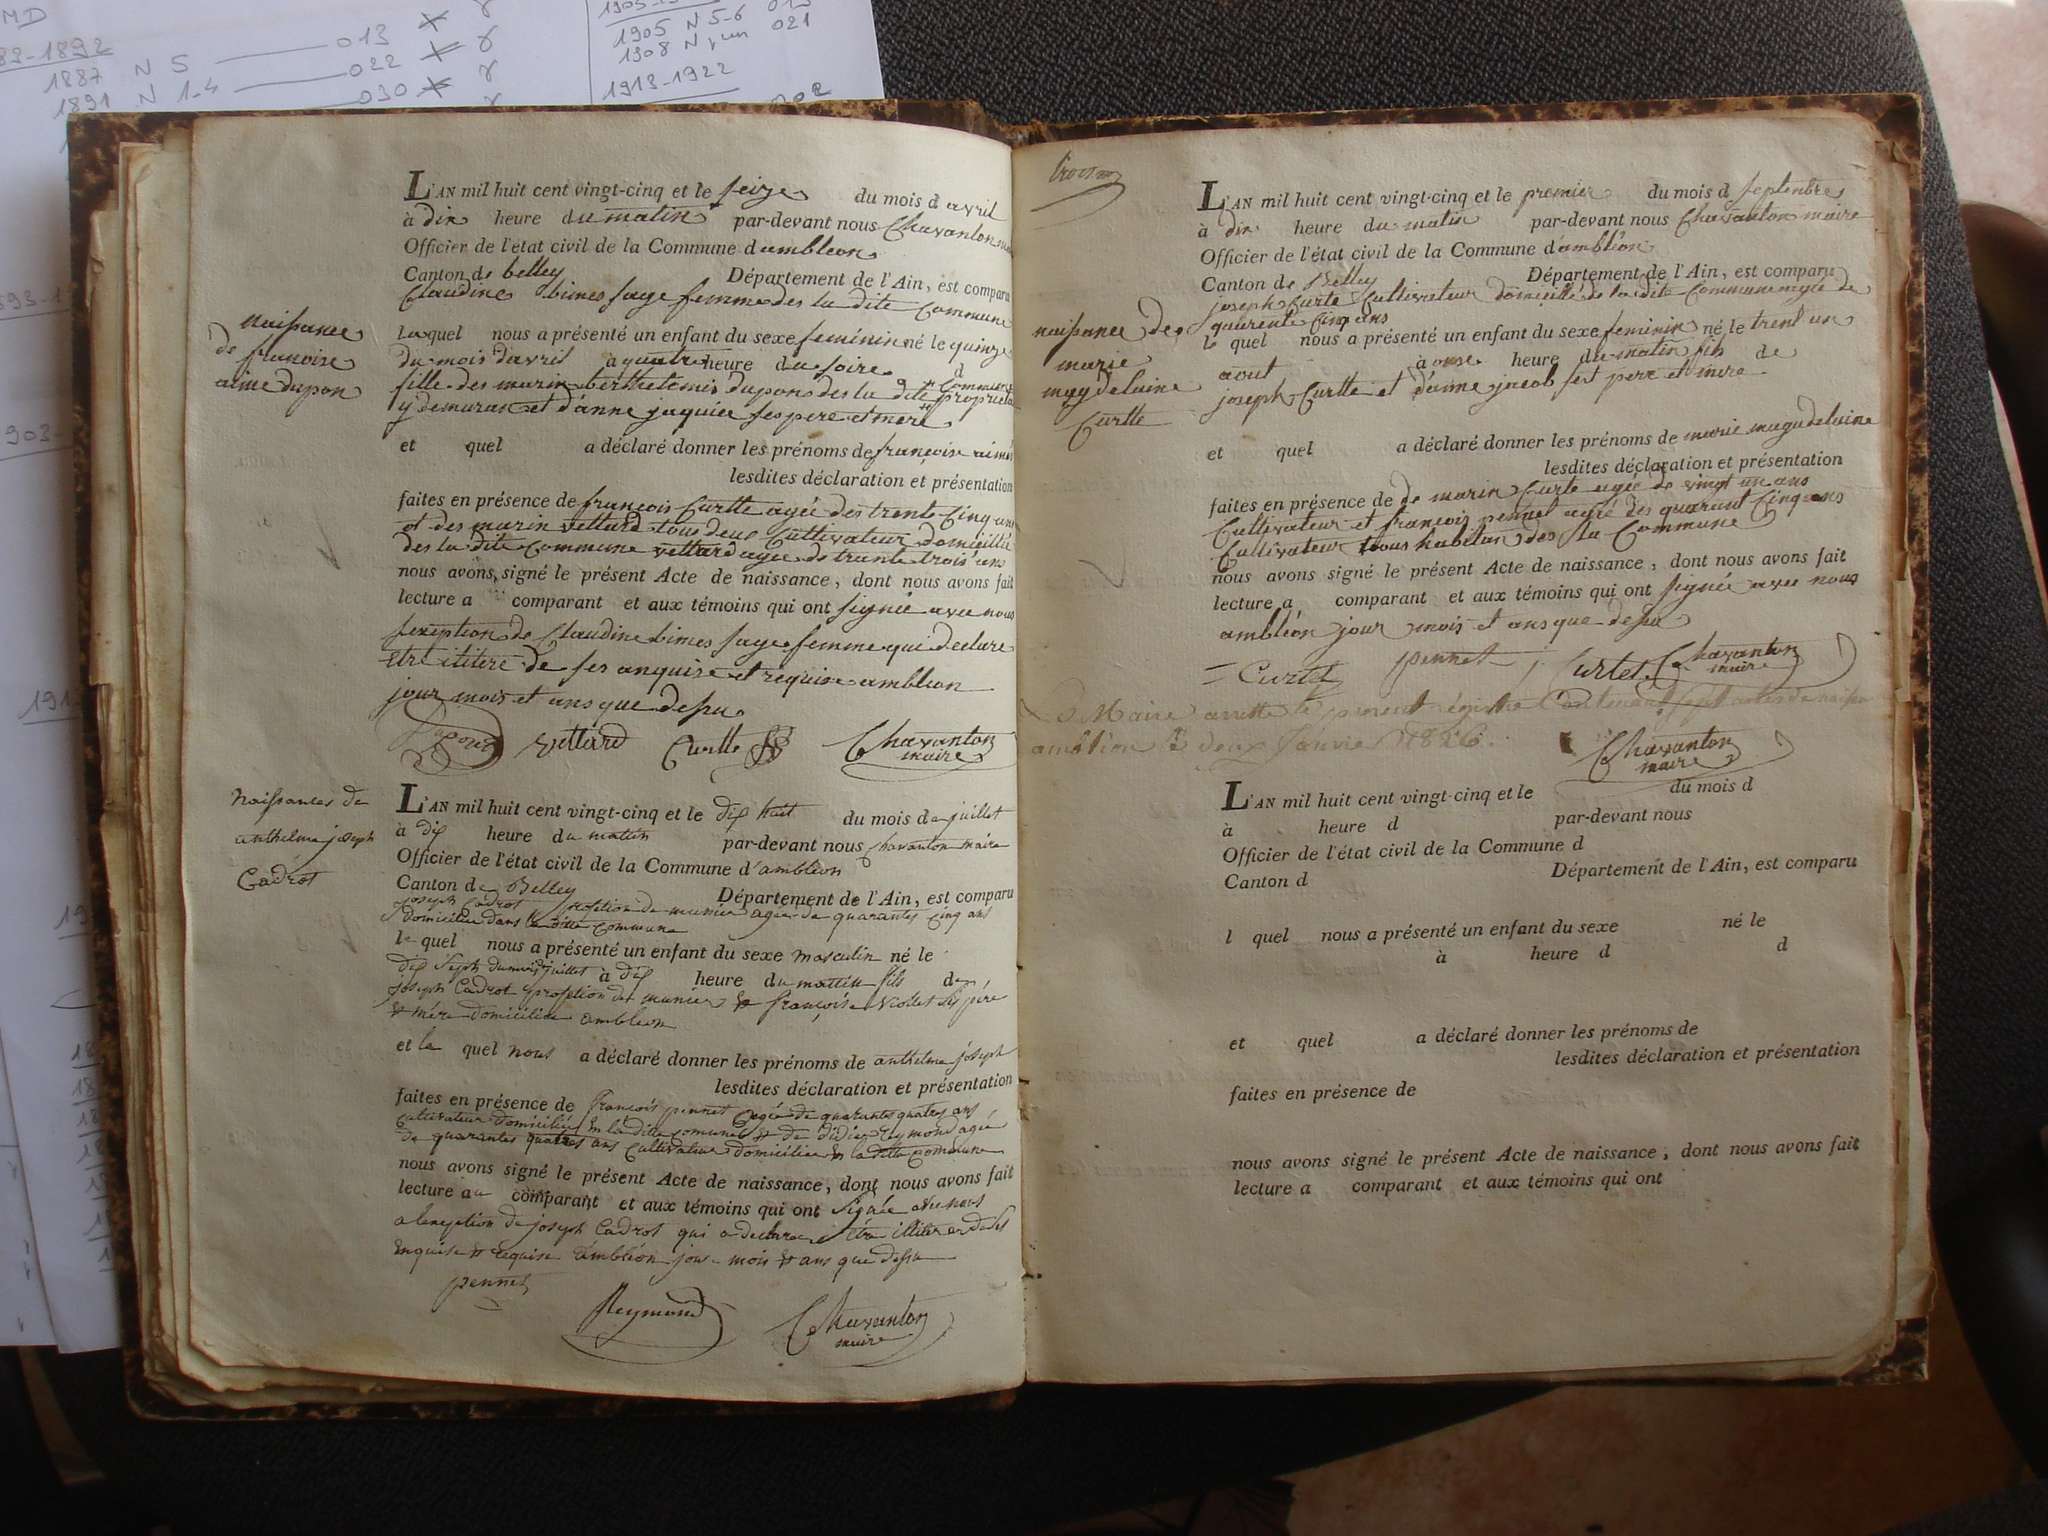 MD
1887 N 5 013
1891 N 1-4 022
030
1905 N 5-6
1908 N 021
1913-1922
naissance
de françoise
aimé dupon
L'AN mil huit cent vingt-cinq et le seize du mois d avril
à dix heure du matin par-devant nous Chavanton
Officier de l'état civil de la Commune d ambleon
Canton de belley Département de l'Ain, est comparu
Claudine bimes sage femme des la dite Commune
laquel nous a présenté un enfant du sexe feminin né le quinze
du mois d'avril à quatre heure du soire d
fille des marin berthelemis dupon des la dite Commune propriet
y demuran et d'anne jaquier ses pere et mere
et quel a déclaré donner les prénoms de françoise aimé
lesdites déclaration et présentation
faites en présence de françois Curtte agée des trente Cinq ans
et des marin vettard tous deux Cultivateur domicillié
des la dite Commune vettard agée de trante trois ans
nous avons signé le présent Acte de naissance, dont nous avons fait
lecture a comparant et aux témoins qui ont signée avec nous
sexeption de Claudine bimes sage femme qui declare
etre ilitere de ses anquise et requise ambleon
jour mois et ans que desu
Dupond vettard Curtte Chavanton
maire
Naissances de
anthelme joseph
Cadrot
L'AN mil huit cent vingt-cinq et le dix huit du mois de juillet
à dix heure du mattin par-devant nous Chavanton maire
Officier de l'état civil de la Commune d'ambléon
Canton de Belley Département de l'Ain, est comparu
joseph Cadrot profetion de munier agée de quarantes cinq ans
domiciliée dans la ditte commune
le quel nous a présenté un enfant du sexe masculin né le
dix sept du mois juillet à dix heure du mattin fils de
joseph Cadrot profetion de munier & françoise Viollet ses père
& mère domiciliée ambleon
et le quel nous a déclaré donner les prénoms de anthelme joseph
lesdites déclaration et présentation
faites en présence de françois pennet agée de quarantes quatres ans
cultivateur domicilié en la ditte comune & de didier Reymond agée
de quarantes quatres ans cultivateur domiciliée en la ditte commune
nous avons signé le présent Acte de naissance, dont nous avons fait
lecture au comparant et aux témoins qui ont signée avec nous
a lexeption de joseph Cadrot qui a declarée être illiter de ses
enquise & requise ambléon jour mois & ans que dessu
pennet
Reymond Chavanton
maire
naissance de
marie
magdelaine
Curtte
L'AN mil huit cent vingt-cinq et le premier du mois d septembre
à dix heure du matin par-devant nous Chavanton maire
Officier de l'état civil de la Commune d'ambléon
Canton de Belley Département de l'Ain, est comparu
joseph Curte Cultivateur domicillé de la dite Commune agée de
quarente Cinq ans
le quel nous a présenté un enfant du sexe feminin né le trent un
aout à onse heure du matin fils de
joseph Curtte et d'anne jacob ses pere et mere
et quel a déclaré donner les prénoms de marie magdelaine
lesdites déclaration et présentation
faites en présence de de marin Curte agée de vingt un ans
Cultivateur et françois pennet agée des quarant Cinq ans
Cultivateur tous habitan des la Commune
nous avons signé le présent Acte de naissance, dont nous avons fait
lecture a comparant et aux témoins qui ont signée avec nous
ambléon jour mois et ans que desu
Curtet pennet j. Curtet Chavanton
maire
Maire arrette le present régistre Contenant sept actes de naissa
ambléon le deux Janvier 1826.
Chavanton
maire
L'AN mil huit cent vingt-cinq et le du mois d
à heure d par-devant nous
Officier de l'état civil de la Commune d
Canton d Département de l'Ain, est comparu
l quel nous a présenté un enfant du sexe né le
à heure d d
et quel a déclaré donner les prénoms de
lesdites déclaration et présentation
faites en présence de
nous avons signé le présent Acte de naissance, dont nous avons fait
lecture a comparant et aux témoins qui ont